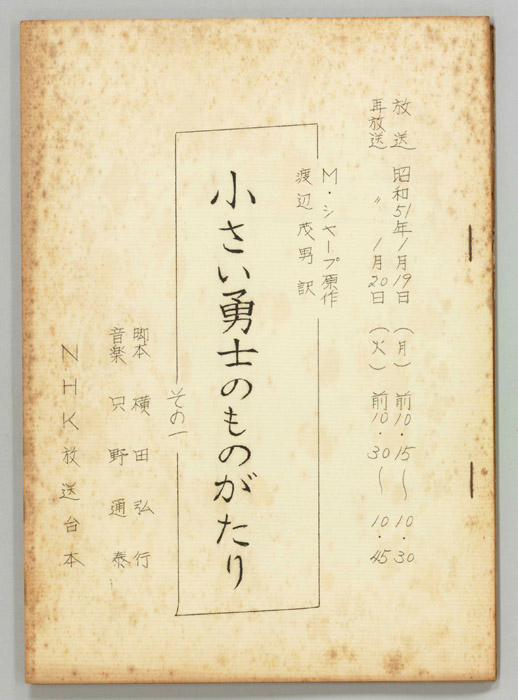 放送 昭和51年1月19日（月）前10.15〜10.30
再放送 〃 1月20日（火）前10.30〜10.45
M・シャープ原作
渡辺茂男訳
小さい勇士のものがたり
その一
脚本 横田弘行
音楽 只野通泰
NHK放送台本